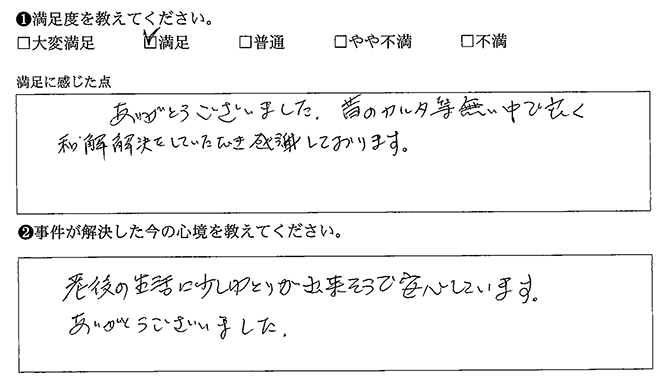 ❶満足度を教えてください。
□大変満足 ☑満足 □普通 □やや不満 □不満
満足に感じた点
ありがとうございました。昔のカルタ等無い中で
和解解決をしていただき感謝しております。
❷事件が解決した今の心境を教えてください。
老後の生活に少しゆとりが出来そうで安心しています。
ありがとうございました。